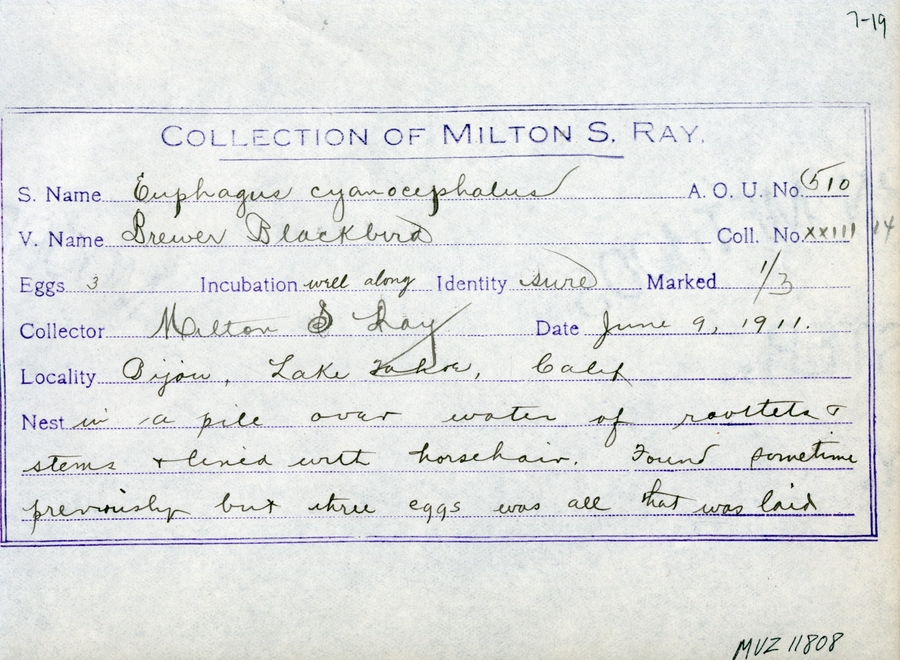 7-19
COLLECTION OF MILTON S. RAY.
S. Name Euphagus cyanocephalus A. O. U. No. 510
V. Name Brewer Blackbird Coll. No. XXIII 14
Eggs 3 Incubation well along Identity sure Marked 1/3
Collector Milton S Ray Date June 9, 1911.
Locality Bijou, Lake Tahoe, Calif
Nest in a pile over water of rootlets &
stems & lined with horsehair. Found sometime
previously but three eggs was all that was laid
MVZ 11808